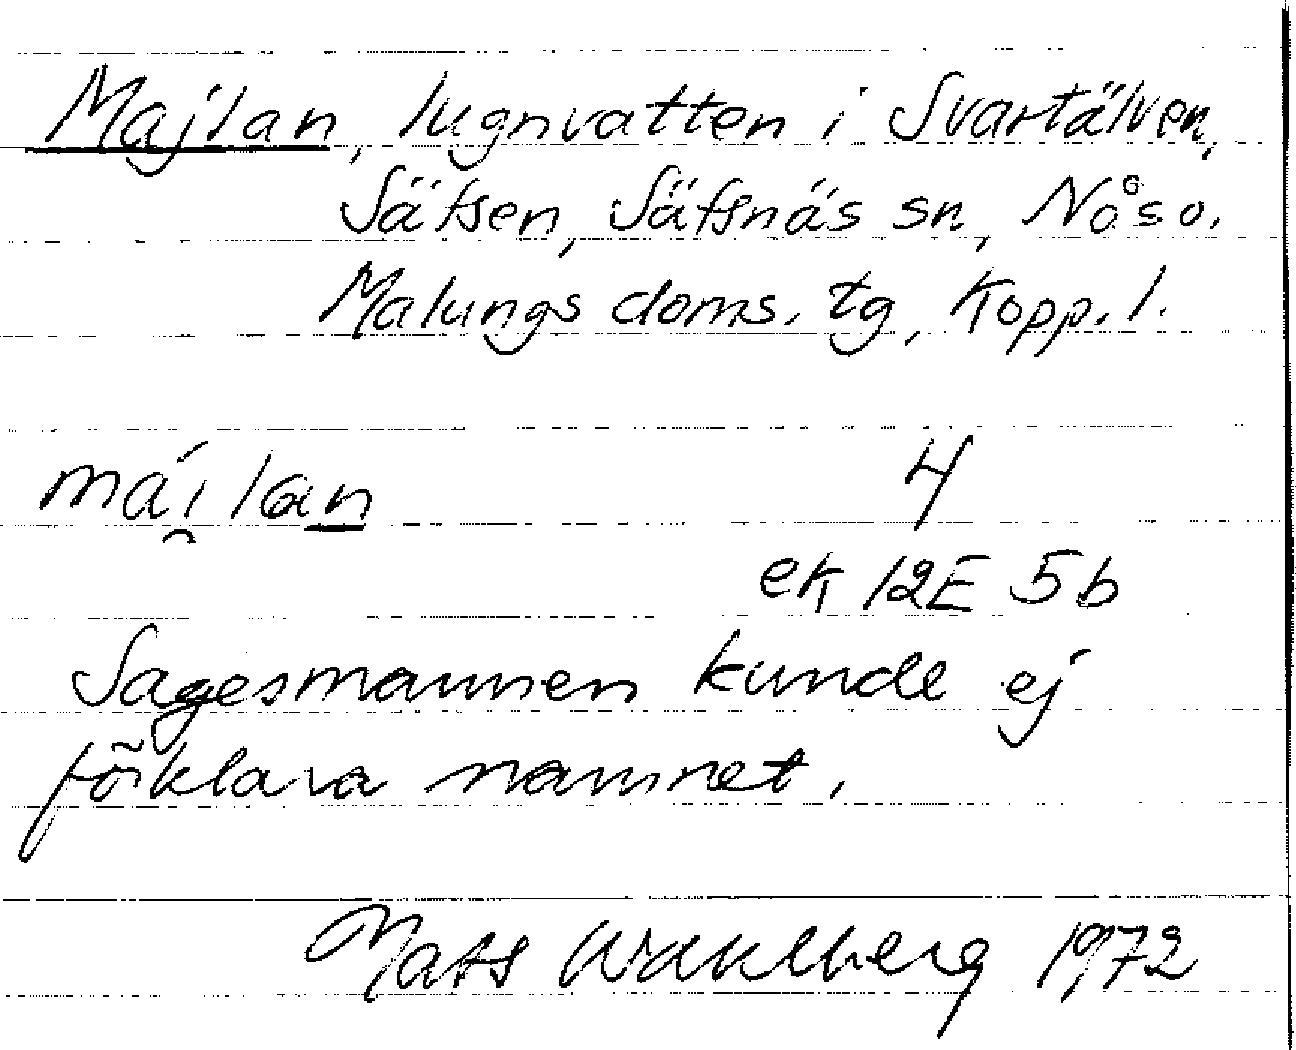 Majlan, lugnvatten i Svartälven,
Sätsen, Säfsnäs sn, Nås o.
Malungs doms. tg, Kopp. l.
mái̯lan 4
ek 12E 5b
Sagesmannen kunde ej
förklara namnet.
Mats Wahlberg 1972